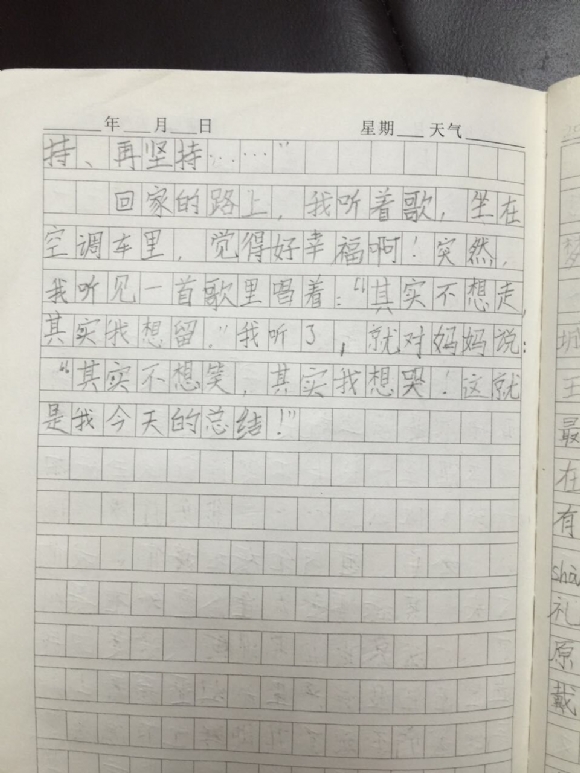 年 月 日 星期 天气
持、再坚持……"
回家的路上，我听着歌，坐在
空调车里，觉得好幸福啊！突然，
我听见一首歌里唱着："其实不想走，
其实我想留。"我听了，就对妈妈说：
"其实不想笑，其实我想哭！这就
是我今天的总结！"
最
在
有
shā
礼
原
载